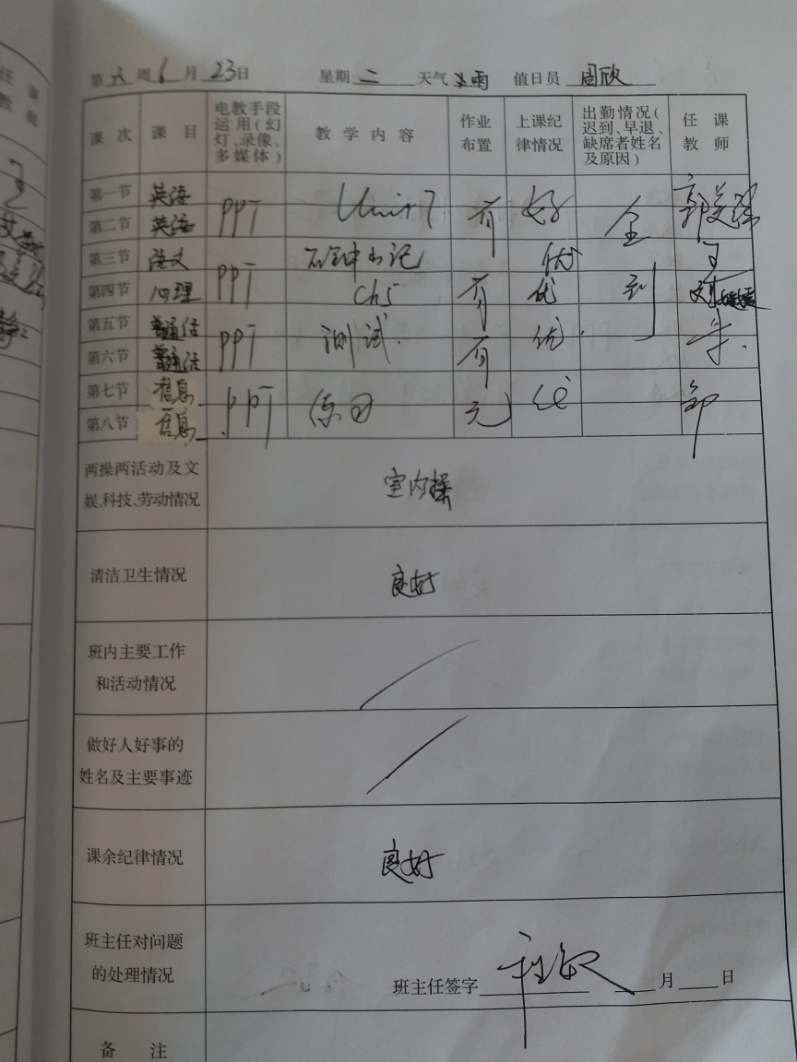 第六周6月23日 星期二 天气 雨 值日员 周欣
课次 课目 电教手段运用(幻灯、录像、多媒体) 教学内容 作业布置 上课纪律情况 出勤情况(迟到、早退、缺席者姓名及原因) 任课教师
第一节 英语 PPT Unit 7 有 好 全到
第二节 英语
第三节 语文 PPT 石钟山记 优
第四节 心理 ch5 有 优
第五节 普通话 PPT 测试 有 优
第六节 普通话
第七节 信息 PPT 练习 无 优 邹
第八节 信息
两操两活动及文
娱、科技、劳动情况 室内操
清洁卫生情况 良好
班内主要工作
和活动情况
做好人好事的
姓名及主要事迹
课余纪律情况 良好
班主任对问题
的处理情况
班主任签字 月 日
备注
任课
教师